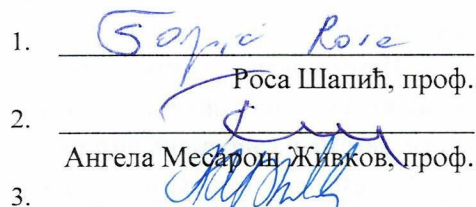 1.
Роса Шапић, проф.
2.
Ангела Месарош Живков, проф.
3.